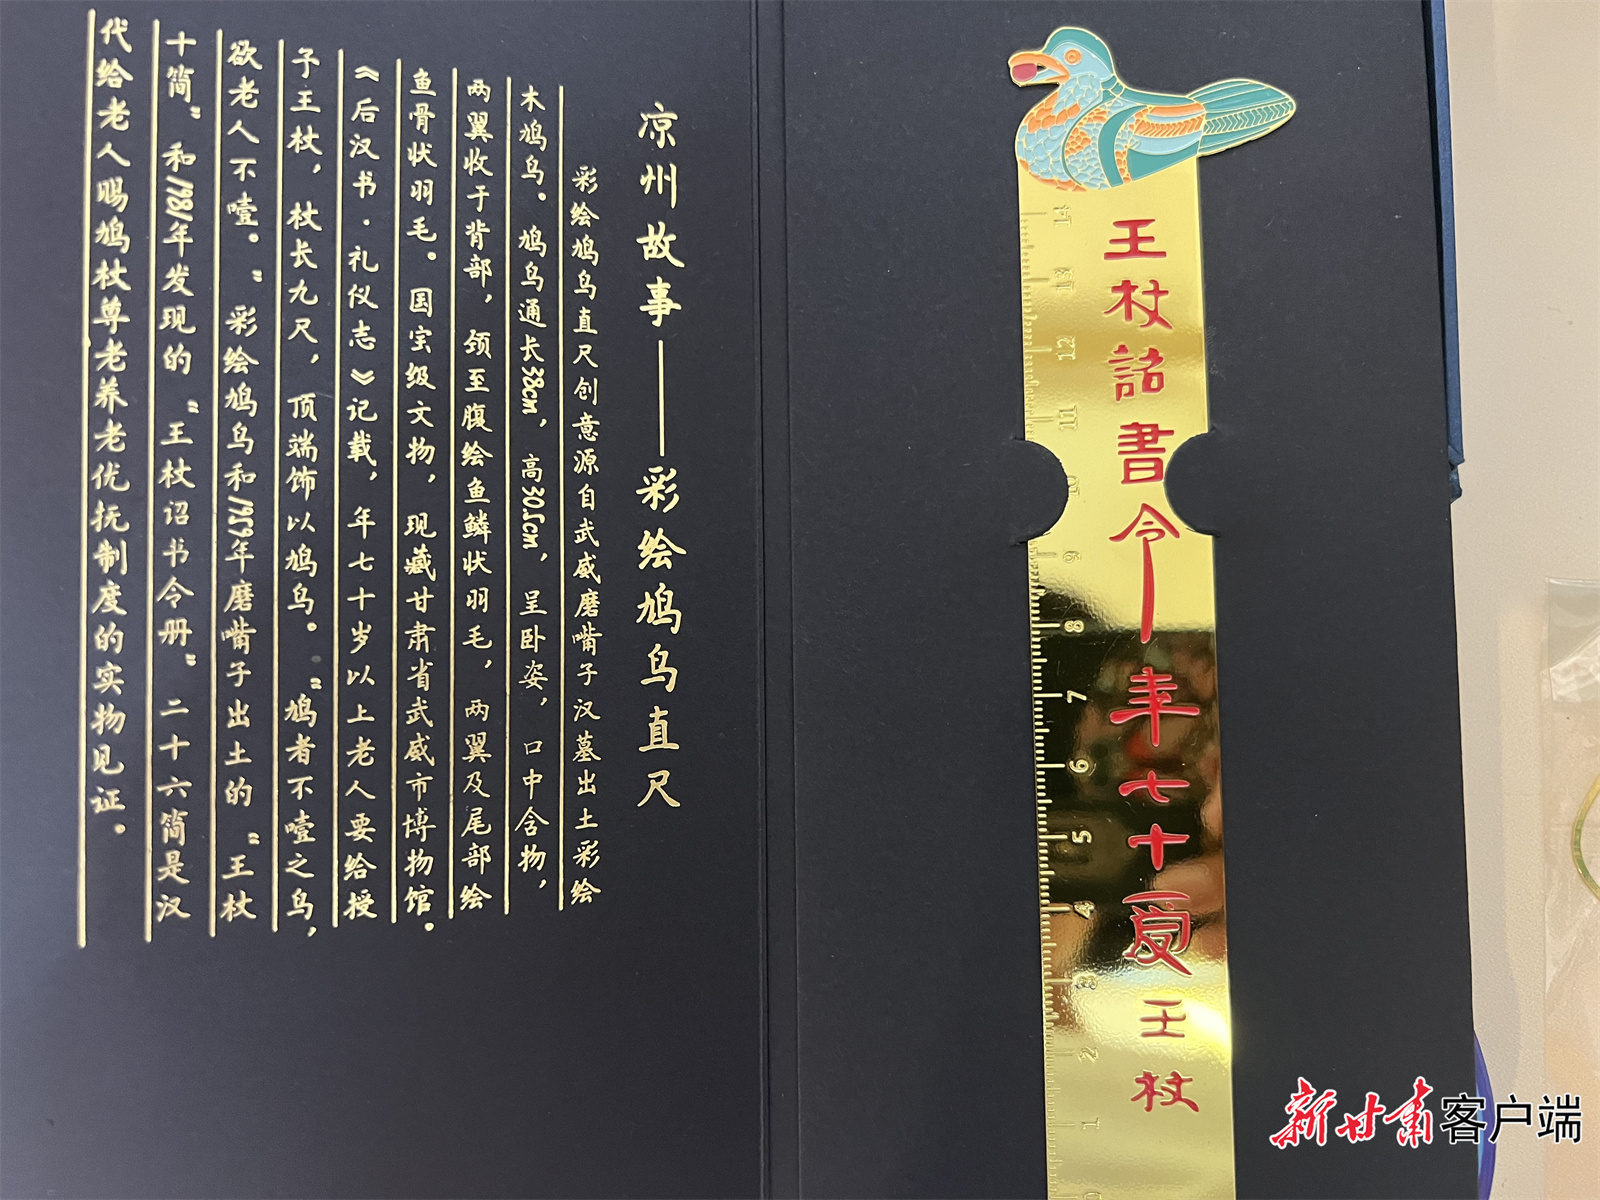 凉州故事——彩绘鸠鸟直尺
彩绘鸠鸟直尺创意源自武威磨嘴子汉墓出土彩绘
木鸠鸟。鸠鸟通长38cm，高30.5cm，呈卧姿，口中含物，
两翼收于背部，颈至腹绘鱼鳞状羽毛，两翼及尾部绘
鱼骨状羽毛。国宝级文物，现藏甘肃省武威市博物馆。
《后汉书·礼仪志》记载，年七十岁以上老人要给授
予王杖，杖长九尺，顶端饰以鸠鸟。“鸠者不噎之鸟，
欲老人不噎。”彩绘鸠鸟和1959年磨嘴子出土的“王杖
十简”和1981年发现的“王杖诏书令册”二十六简是汉
代给老人赐鸠杖尊老养老优抚制度的实物见证。
王杖詔書令
年七十受王杖
14
13
12
11
10
9
8
7
6
5
4
3
2
1
0
新甘肃客户端